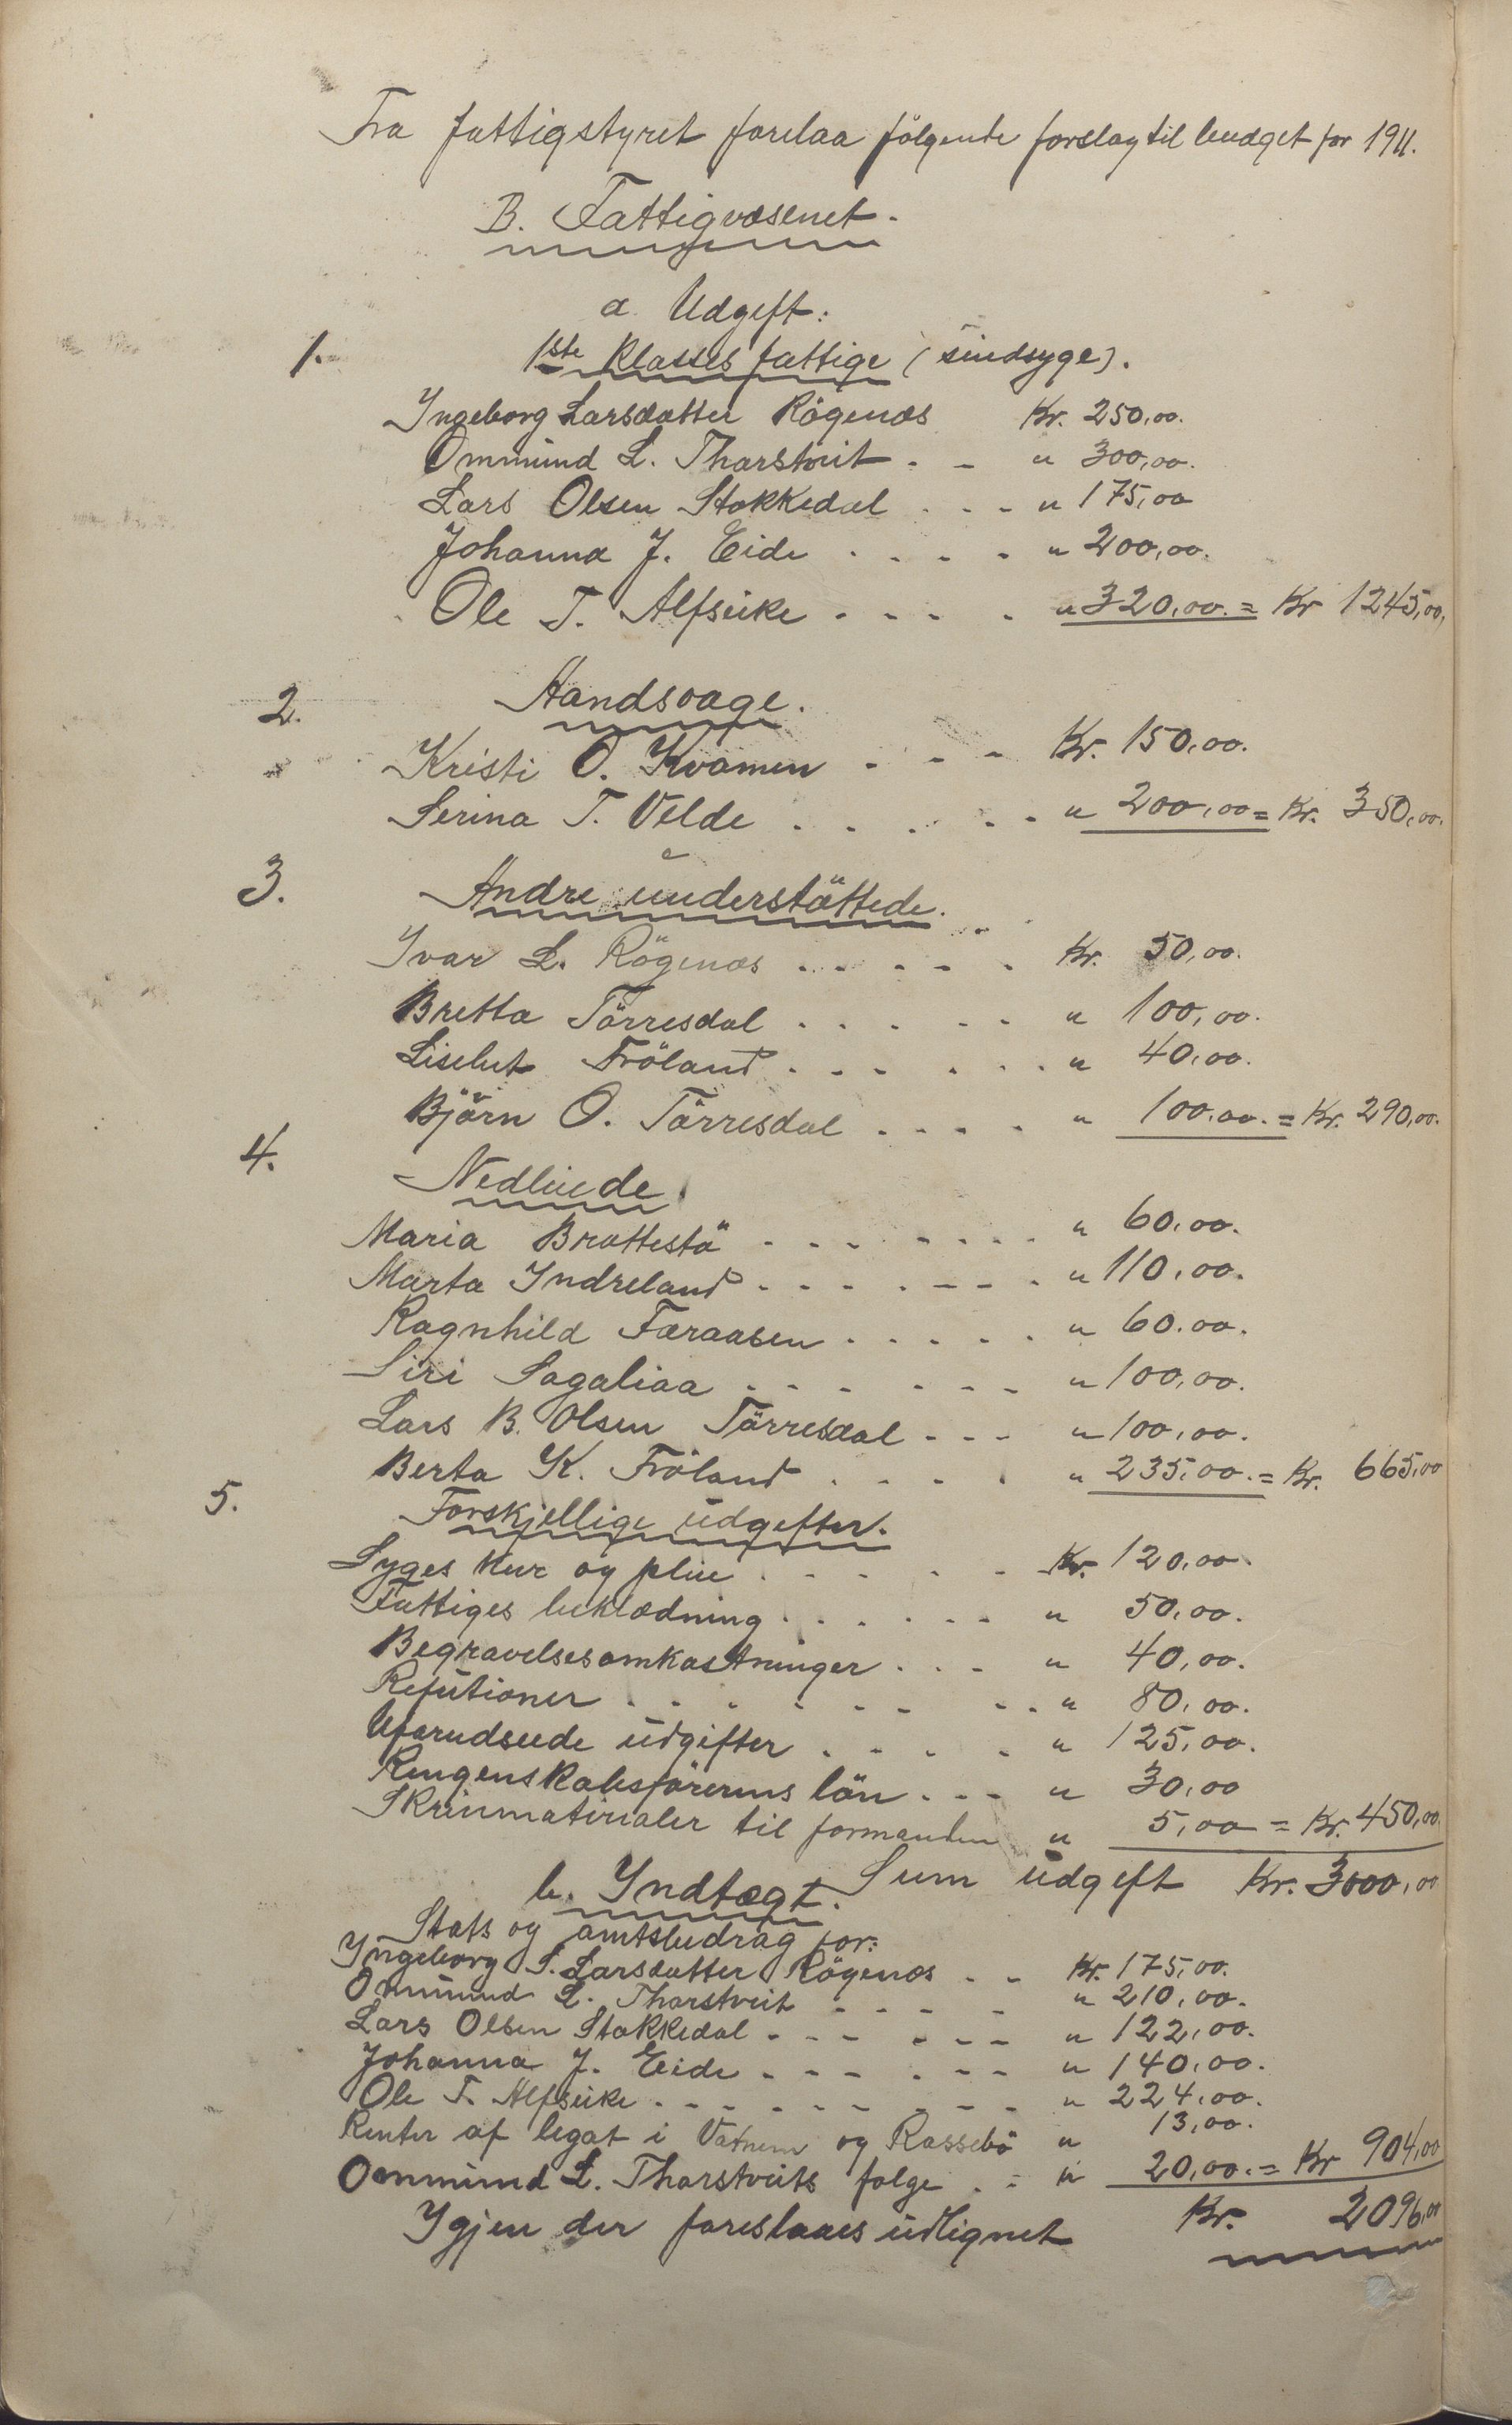 Fra fattigstyret forelaa fölgende forslag til budget for 1911.
B. Fattigvæsenet.
a. Udgift:
1. 1ste Klasses fattige (sindsyge).
Yngeborg Larsdatter Rögenæs Kr. 250,00.
Ommund L. Tharstveit . - " 300,00.
Lars Olsen Stakkedal . - - " 175,00
Johanna J. Eide . . . . " 200,00.
Ole T. Alfseike . . . . " 320,00. = Kr 1245,00,
2. Aandsvage.
Kristi O. Kvamen . - - Kr. 150,00.
Serina T. Velde . . . . . " 200,00 = Kr. 350,00.
3. Andre understöttede.
Yvar L. Rögenæs . . . . . Kr. 50,00.
Bretta Törresdal . . . . . " 100,00.
Liselut Fröland . . . . . . " 40,00.
Björn O. Törresdal . . . . " 100.00. = Kr. 290,00.
4. Nedbuede.
Maria Brattestö . . . . . . . " 60,00.
Marta Yndreland . . . . . . . " 110,00.
Ragnhild Færaasen . . . . . " 60.00.
Siri Sagaliaa . . . . . . " 100,00.
Lars B. Olsen Törresdal - - - " 100,00.
Berta K. Fröland . . . . " 235,00. = Kr. 665,00
5. Forskjellige udgifter.
Syges kur og pleie . . . . . Kr. 120,00.
Fattiges beklædning . . . . . . " 50,00.
Begravelsesomkostninger . . . " 40,00.
Refutioner . . . . . . . . " 80,00.
Uforudseede udgifter . . . . " 125,00.
Rengenskabsförerens lön . . . " 30,00
Skrivmaterialer til formanden " 5,00 = Kr. 450,00.
Sum udgift Kr. 3000,00
b. Yndtægt.
Stats og amtsbidrag for:
Yngeborg S. Larsdatter Rögenæs . - Kr. 175,00.
Ommund L. Tharstveit . . . . " 210,00.
Lars Olsen Stakkedal . . . . . . " 122,00.
Johanna J. Eide . . . . . . " 140,00.
Ole T. Alfseike . . . . . . . . " 224,00.
Renter af legat i Vatnem og Rossebö " 13,00.
Ommund L. Tharstveits følge . - " 20,00. = Kr 904,00
Ygjen der foreslaaes udlignet Kr. 2096,00